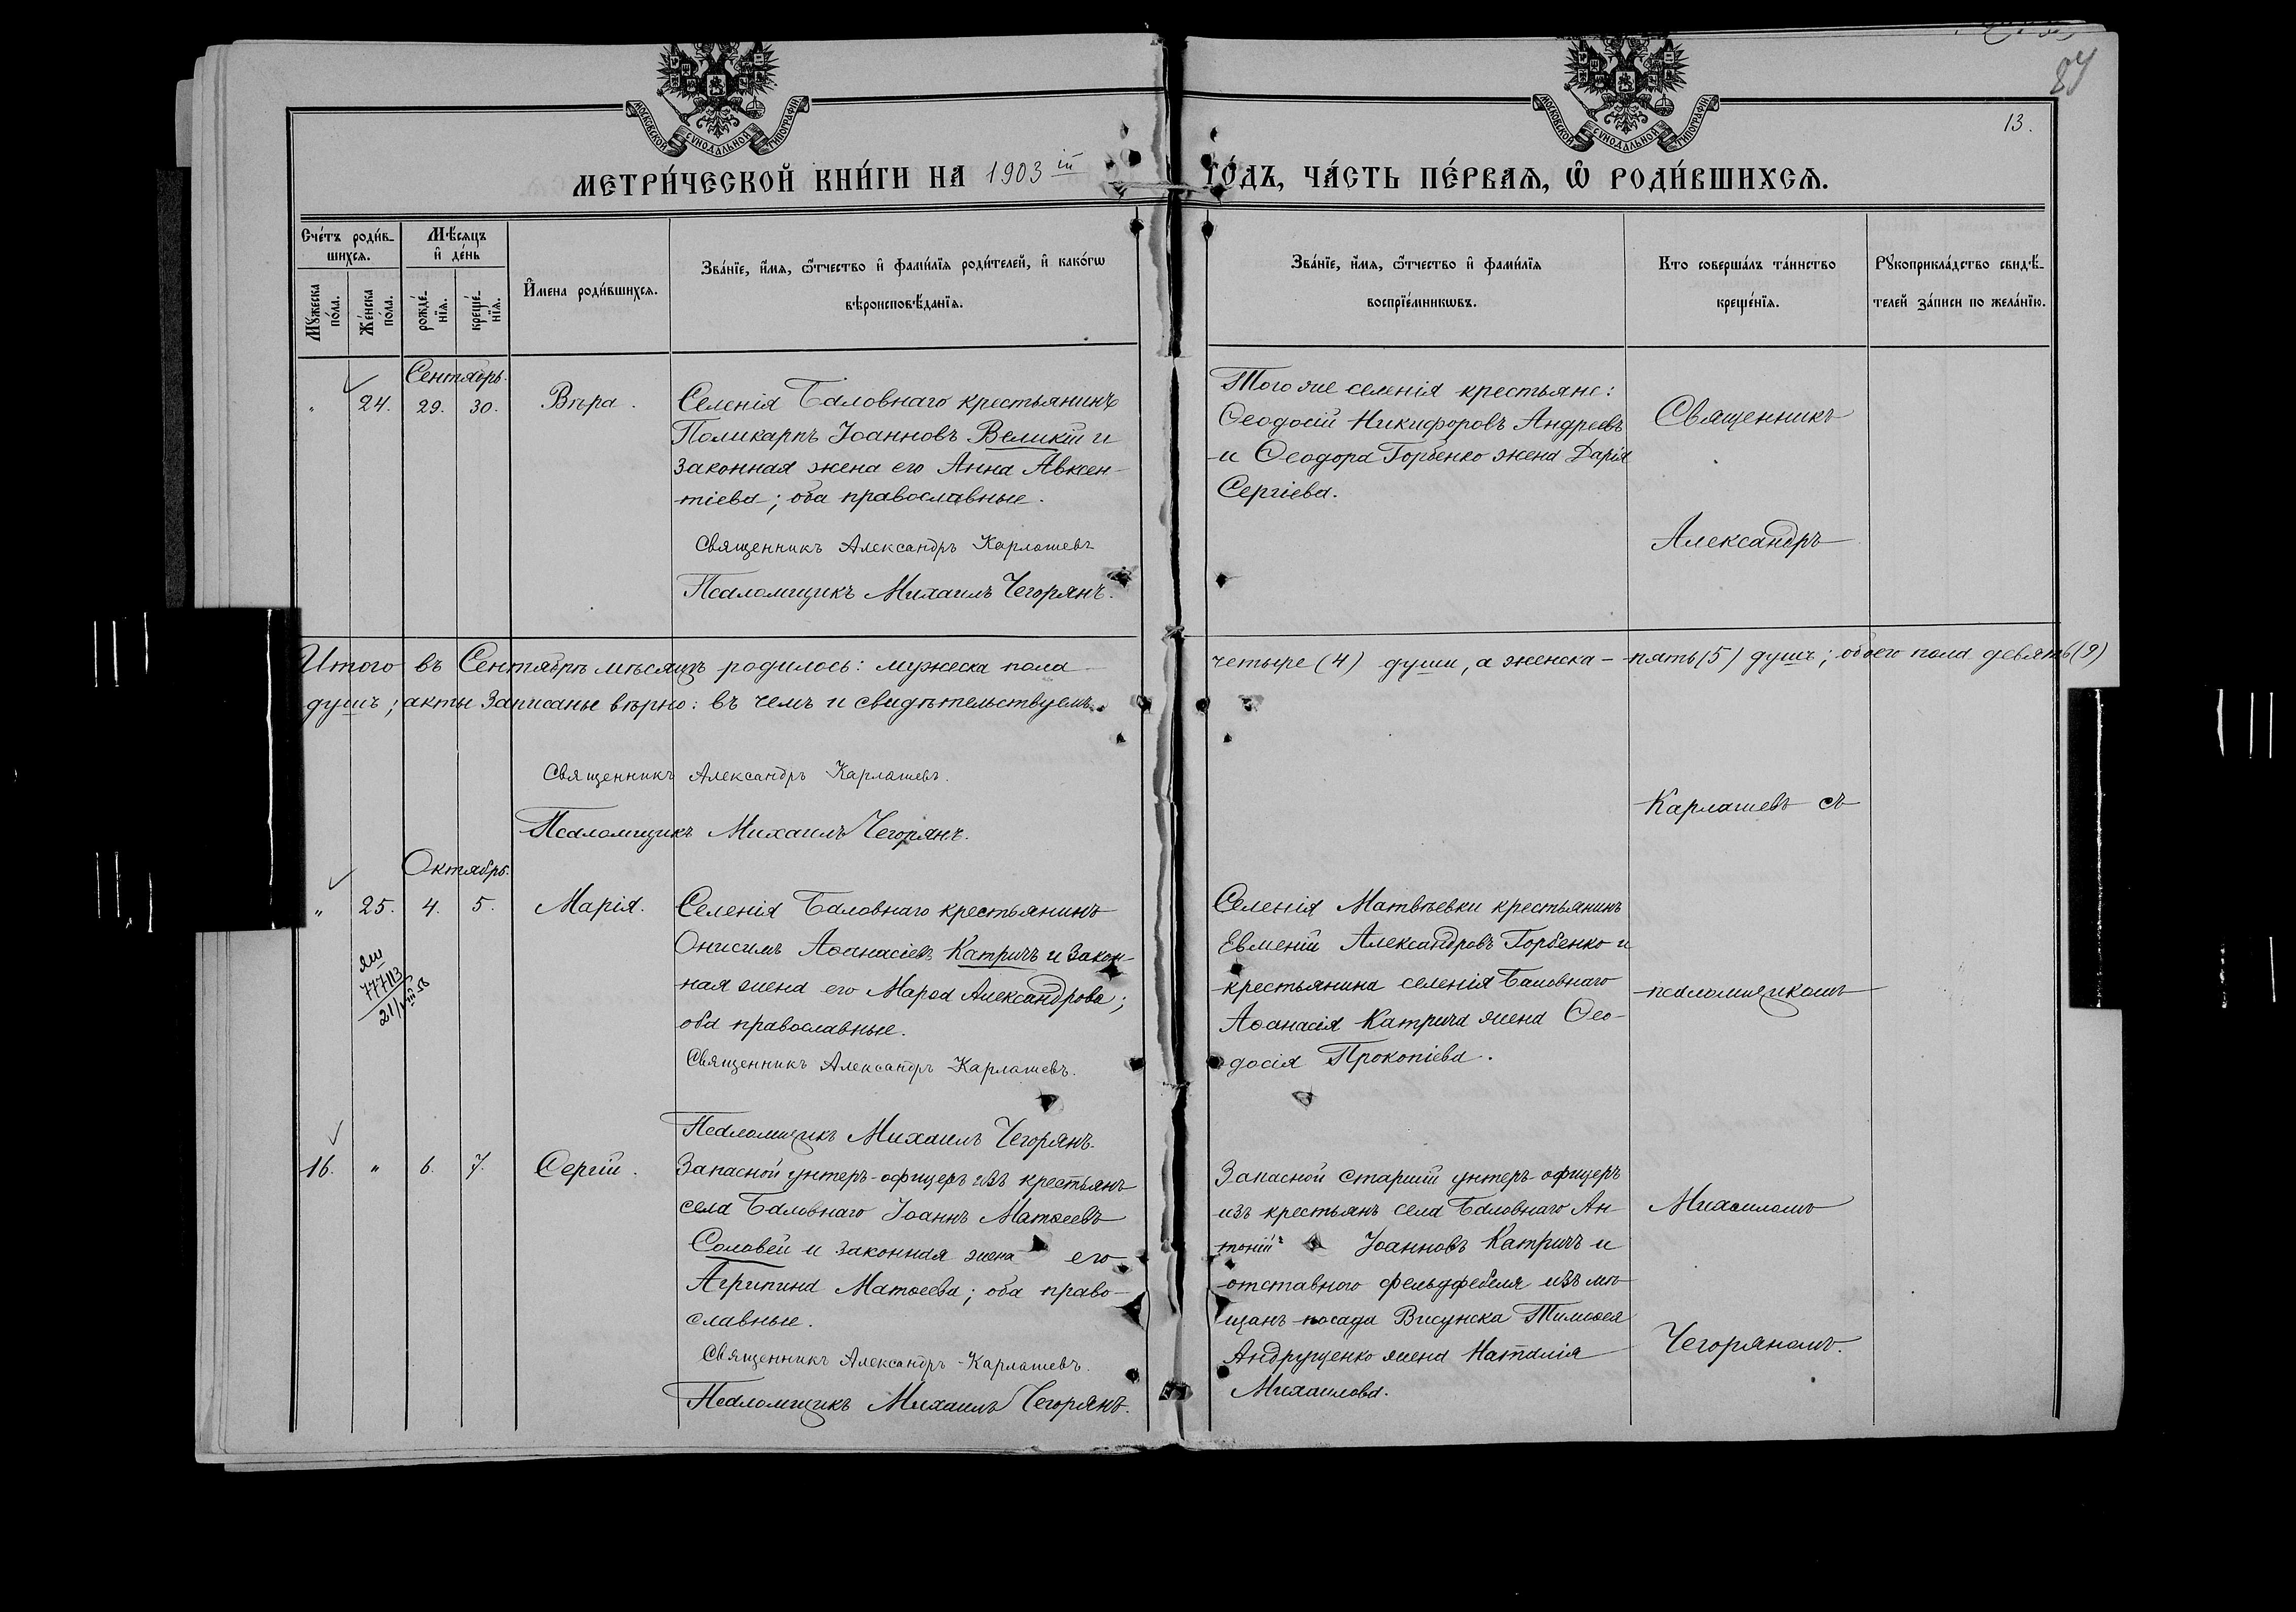 84
13.
МОСКОВСКОЙ СѴНОДАЛЬНОЙ ТИПОГРАФІИ
МОСКОВСКОЙ СѴНОДАЛЬНОЙ ТИПОГРАФІИ
МЕТРИ́ЧЕСКОЙ КНИ́ГИ НА 1903 ій ГО́ДЪ, ЧА́СТЬ ПЕ́РВАѦ, Ѡ҆ РОДИ́ВШИХСѦ.
Сче́тъ роди́в-
шихсѧ.
Мꙋ́жеска по́ла.
Же́нска по́ла.
Мѣ́сѧцъ
и҆ де́нь
рожде́-
нїѧ.
креще́-
нїѧ.
И҆мена роди́вшихсѧ.
Зва́нїе, и҆́мѧ, ѻ҆́тчество и҆ фами́лїѧ роди́телей, и҆ како́гѡ
вѣроисповѣ́данїѧ.
Зва́нїе, и҆́мѧ, ѻ҆́тчество и҆ фами́лїѧ
воспрїе́мникѡвъ.
Кто соверша́лъ та́инство
креще́нїѧ.
Рꙋкоприкла́дство свидѣ́-
телей за́писи по жела́нїю.
Сентябрь.
" 24. 29. 30. Вѣра.
Селенія Баловнаго крестьянинъ
Поликарпъ Іоанновъ Великій и
законная жена его Анна Авксен-
тіева; оба православные.
Священникъ Александръ Карлашевъ
Псаломщикъ Михаилъ Чегорянъ.
Того же селенія крестьяне:
Ѳеодосій Никифоровъ Андреевъ
и Ѳеодора Горбенко жена Дарія
Сергіева.
Священникъ
Александръ
Итого въ Сентябрѣ мѣсяцѣ родилось: мужеска пола четыре (4) души, а женска - пять (5) душъ; обоего пола девять (9)
душъ; акты записаны вѣрно: въ чемъ и свидѣтельствуемъ.
Священникъ Александръ Карлашевъ.
Псаломщикъ Михаилъ Чегорянъ.
Карлашевъ съ
Октябрь.
" 25. 4. 5. Марія.
77113
21/VIII 56
Селенія Баловнаго крестьянинъ
Онисимъ Аѳанасіевъ Катричъ и закон-
ная жена его Марѳа Александрова;
оба православные.
Священникъ Александръ Карлашевъ.
Псаломщикъ Михаилъ Чегорянъ.
Селенія Матвѣевки крестьянинъ
Евменій Александровъ Горбенко и
крестьянина селенія Баловнаго
Аѳанасія Катрича жена Ѳео-
досія Прокопіева.
псаломщикомъ
16. " 6. 7. Сергій.
Запасной унтеръ-офицеръ изъ крестьянъ
села Баловнаго Іоаннъ Матѳеевъ
Соловей и законная жена его
Агрипина Матѳеева; оба право-
славные.
Священникъ Александръ Карлашевъ.
Псаломщикъ Михаилъ Чегорянъ.
Запасной старшій унтеръ-офицеръ
изъ крестьянъ села Баловнаго Ан-
тоній Іоанновъ Катричъ и
отставного фельдфебеля изъ мѣ-
щанъ посада Висунска Тимоѳея
Андрущенко жена Наталія
Михаилова.
Михаиломъ
Чегоряномъ.